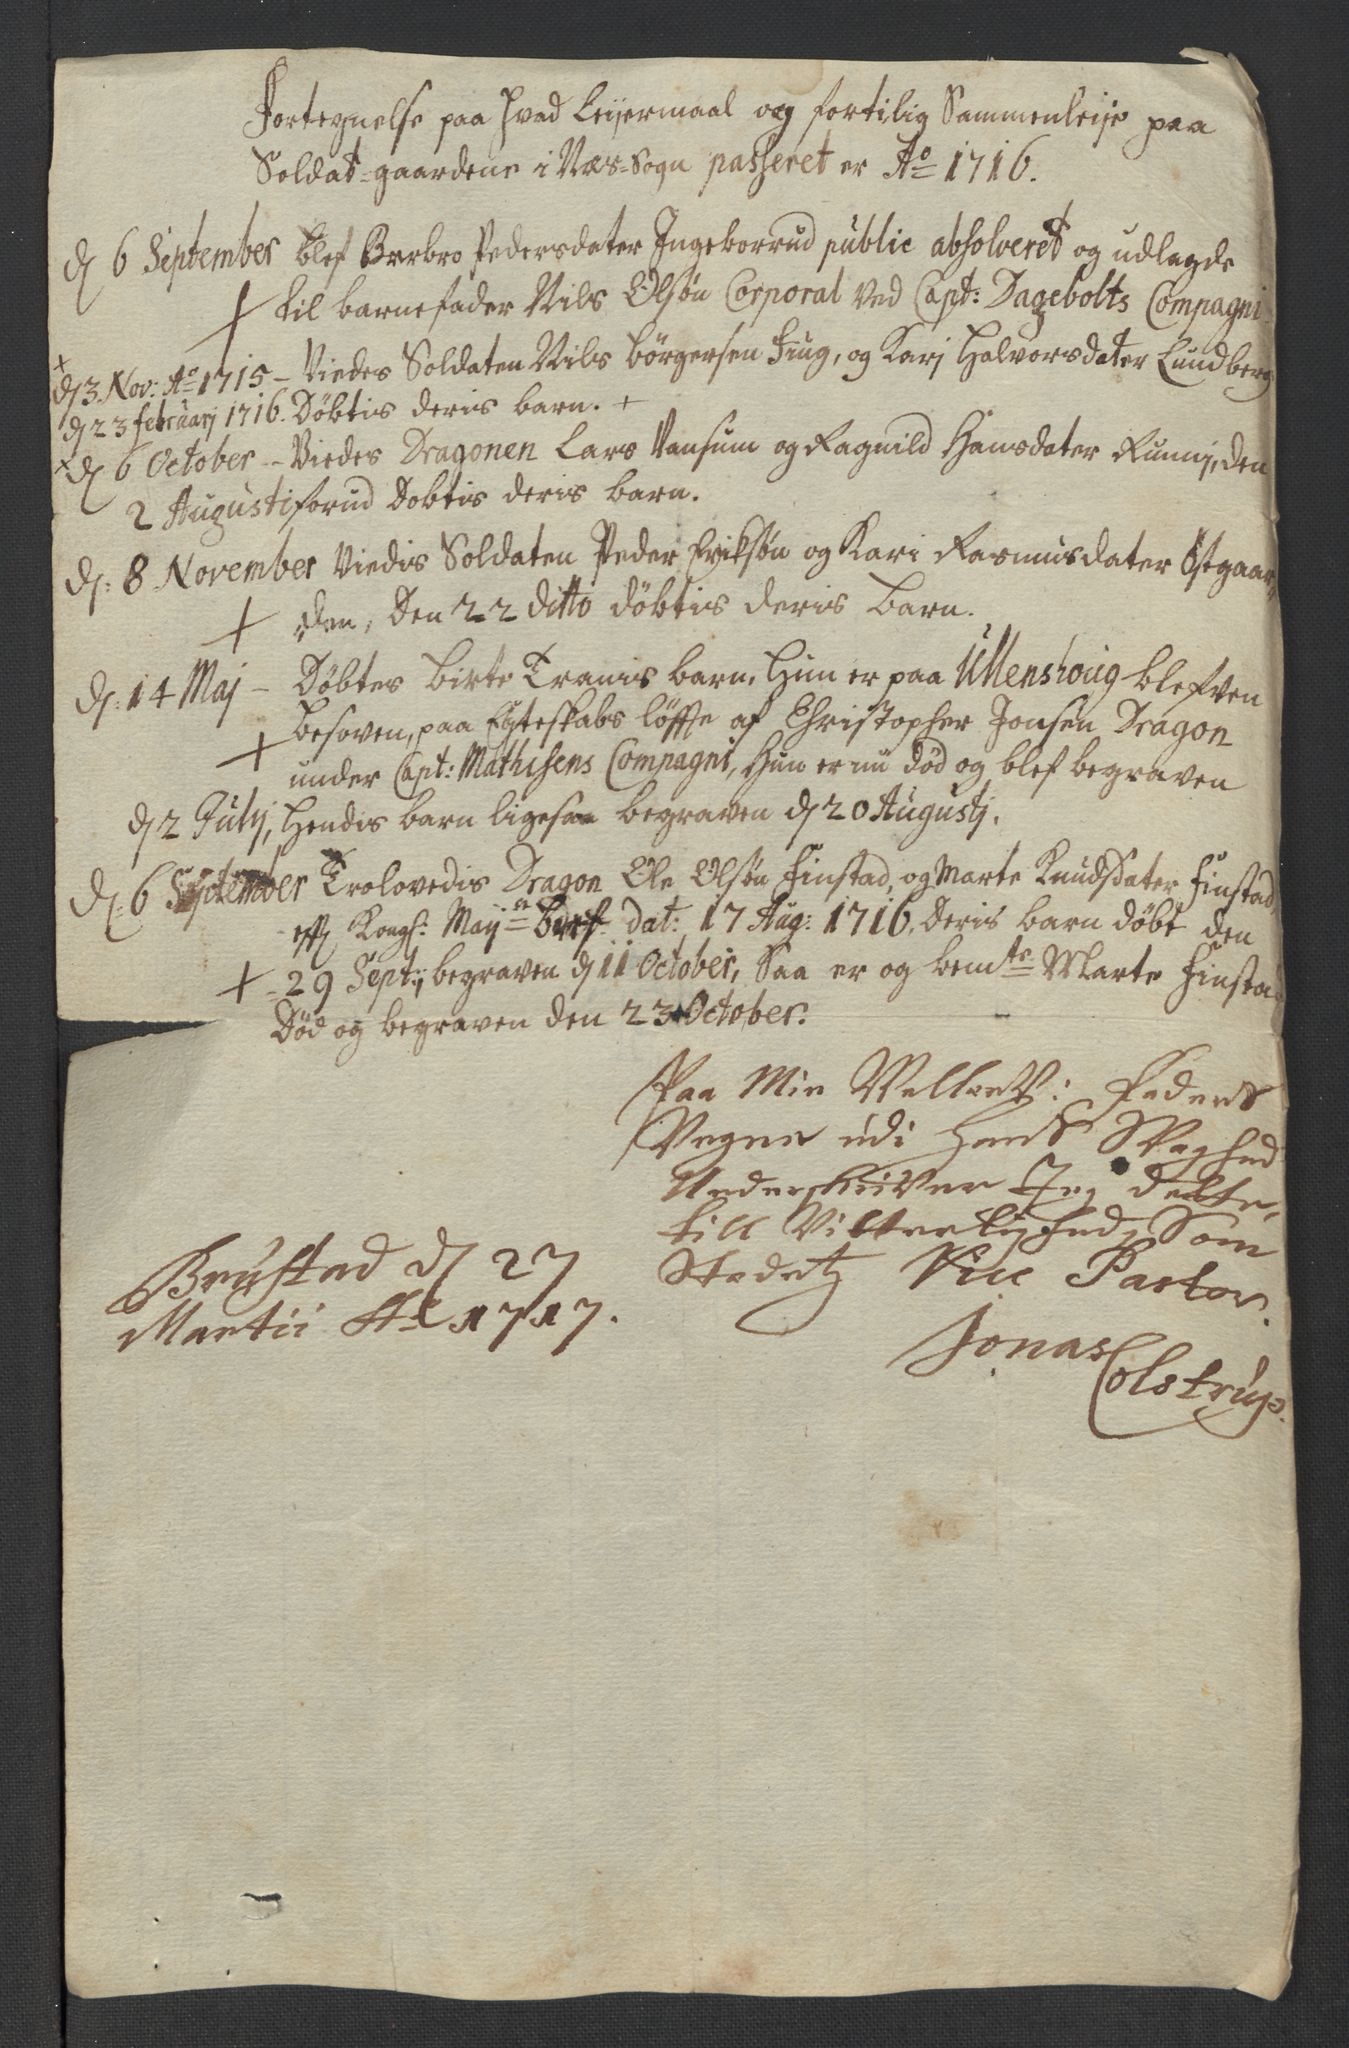 Fortegnelse paa hvad Leijermaal og fortilig Sammenleije paa
Soldat=gaardene i Næs=Sogn passeret er Ao 1716.
dj 6 September blef Brrbro Pedersdater Ingeborrud public absolveret og udlagde
+ til barnefader Nils Olsøn Corporal ved Capt: Dagebolts Compagni
+ dj 3. Nov: Ao 1715 – Viedes Soldaten Nils Børgersen Fiug, og Karj Halvorsdater Lundberg
dj 23 februarj 1716. Døbtis deris barn. +
+ dj 6 October – Viedes Dragonen Lars Vansum og Ragnild Hansdater Runnj, den
2 Augusti forud Døbtis deris barn.
dj: 8 November Viedis Soldaten Peder Eriksøn og Kari Rasmusdater Østgaar
+ den, Den 22 ditto døbtis deris barn.
dj: 14 Maj – Døbtes Birte Tranis barn, hun er paa Ullenshoug blefven
besoven, paa Egteskabs løffte af Christopher Jonsen Dragon
+ under Capt: Mathisens Compagni, Hun er nu død og blef begraven
dj 2 Julij, Hendis barn ligesaa begraven dj 20 Augustj.
dj: 6 September Trolovedis Dragon Ole Olsøn Finstad, og Marte Knudsdater Finstad,
efft Kongl: Maij: dat: 17 Aug: 1716, Deris barn døbt den
+ 29 Sept:, begraven dj 11 October, Saa er og bemte Marte Finstad
Død og begraven den 23 October.
Paa Min Vellært: Faders
Vegne udi hans Svaghed
Underskriver Jeg dette,
till Vitterlighed, Som
Stedetz Vice Pastor.
Jonas Colstrup.
Bruested dj 27
Martii Ao 1717.